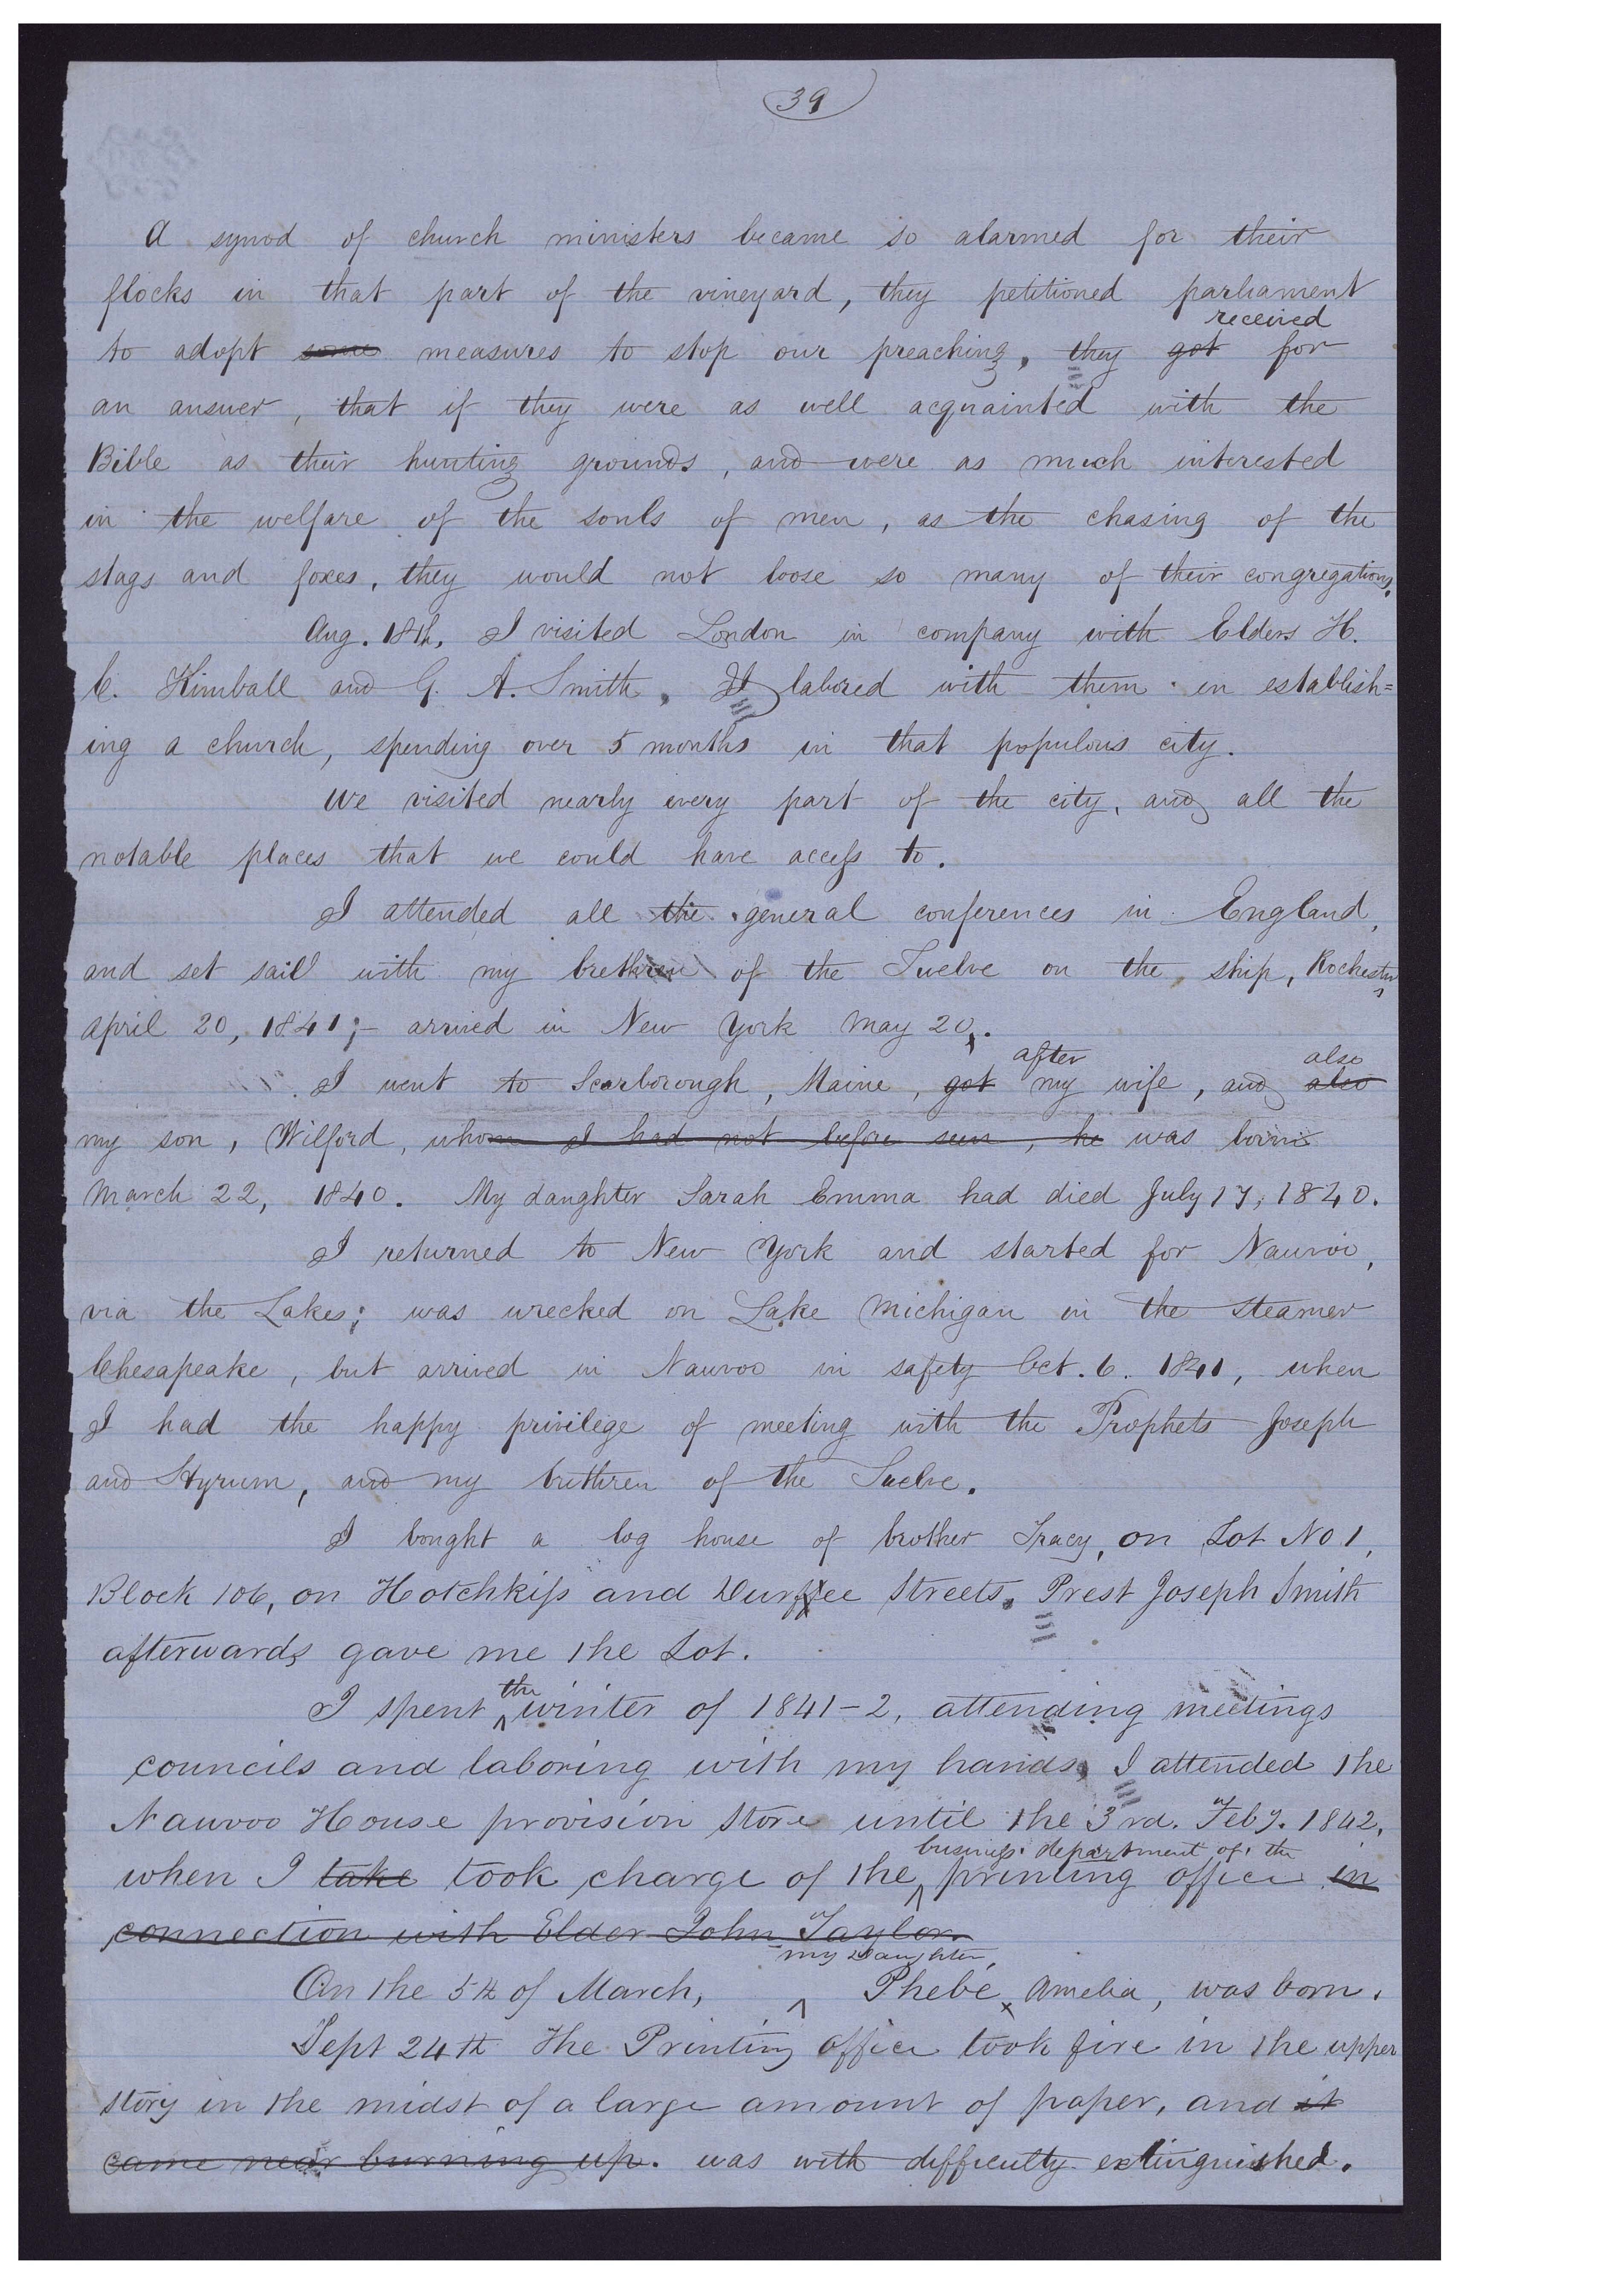 39
A synod of church ministers became so alarmed for their
flocks in that part of the vineyard, they petitioned parliament
received
to adopt some measures to stop our preaching, they got for
an answer, that if they were as well acquainted with the
Bible as their hunting grounds, and were as much interested
in the welfare of the souls of men, as the chasing of the
stags and foxes, they would not loose so many of their congregations.
Aug. 18th, I visited London in company with Elders H.
C. Kimball and G. A. Smith, I labored with them in establish=
ing a church, spending over 5 months in that populous city.
We visited nearly every part of the city, and all the
notable places that we could have access to.
I attended all the general conferences in England,
and set sail with my brethren of the Twelve on the ship, Rochester
April 20, 1841;– arrived in New York May 20.
after also
I went to Scarborough, Maine, got my wife, and also
my son, Wilford, whom I had not before seen, he was born
March 22, 1840. My daughter Sarah Emma had died July 17, 1840.
I returned to New York and started for Nauvoo,
via the Lakes; was wrecked on Lake Michigan in the steamer
Chesapeake, but arrived in Nauvoo in safety Oct. 6. 1841, when
I had the happy privilege of meeting with the Prophets Joseph
and Hyrum, and my brethren of the Twelve.
I bought a log house of brother Tracy, on Lot No 1,
Block 106, on Hotchkiss and Durfee Streets. Prest Joseph Smith
afterwards gave me the Lot.
the
I spent winter of 1841–2, attending meetings
councils and laboring with my hands, I attended the
Nauvoo House provision store until the 3rd. Feby. 1842,
business department of the
when I take took charge of the printing office in
connection with Elder John Taylor.
my Daughter,
On the 5th of March, Phebe Amelia, was born.
Sept 24th The Printing office took fire in the upper
story in the midst of a large amount of paper, and it
came near burning up. was with difficulty extinguished.